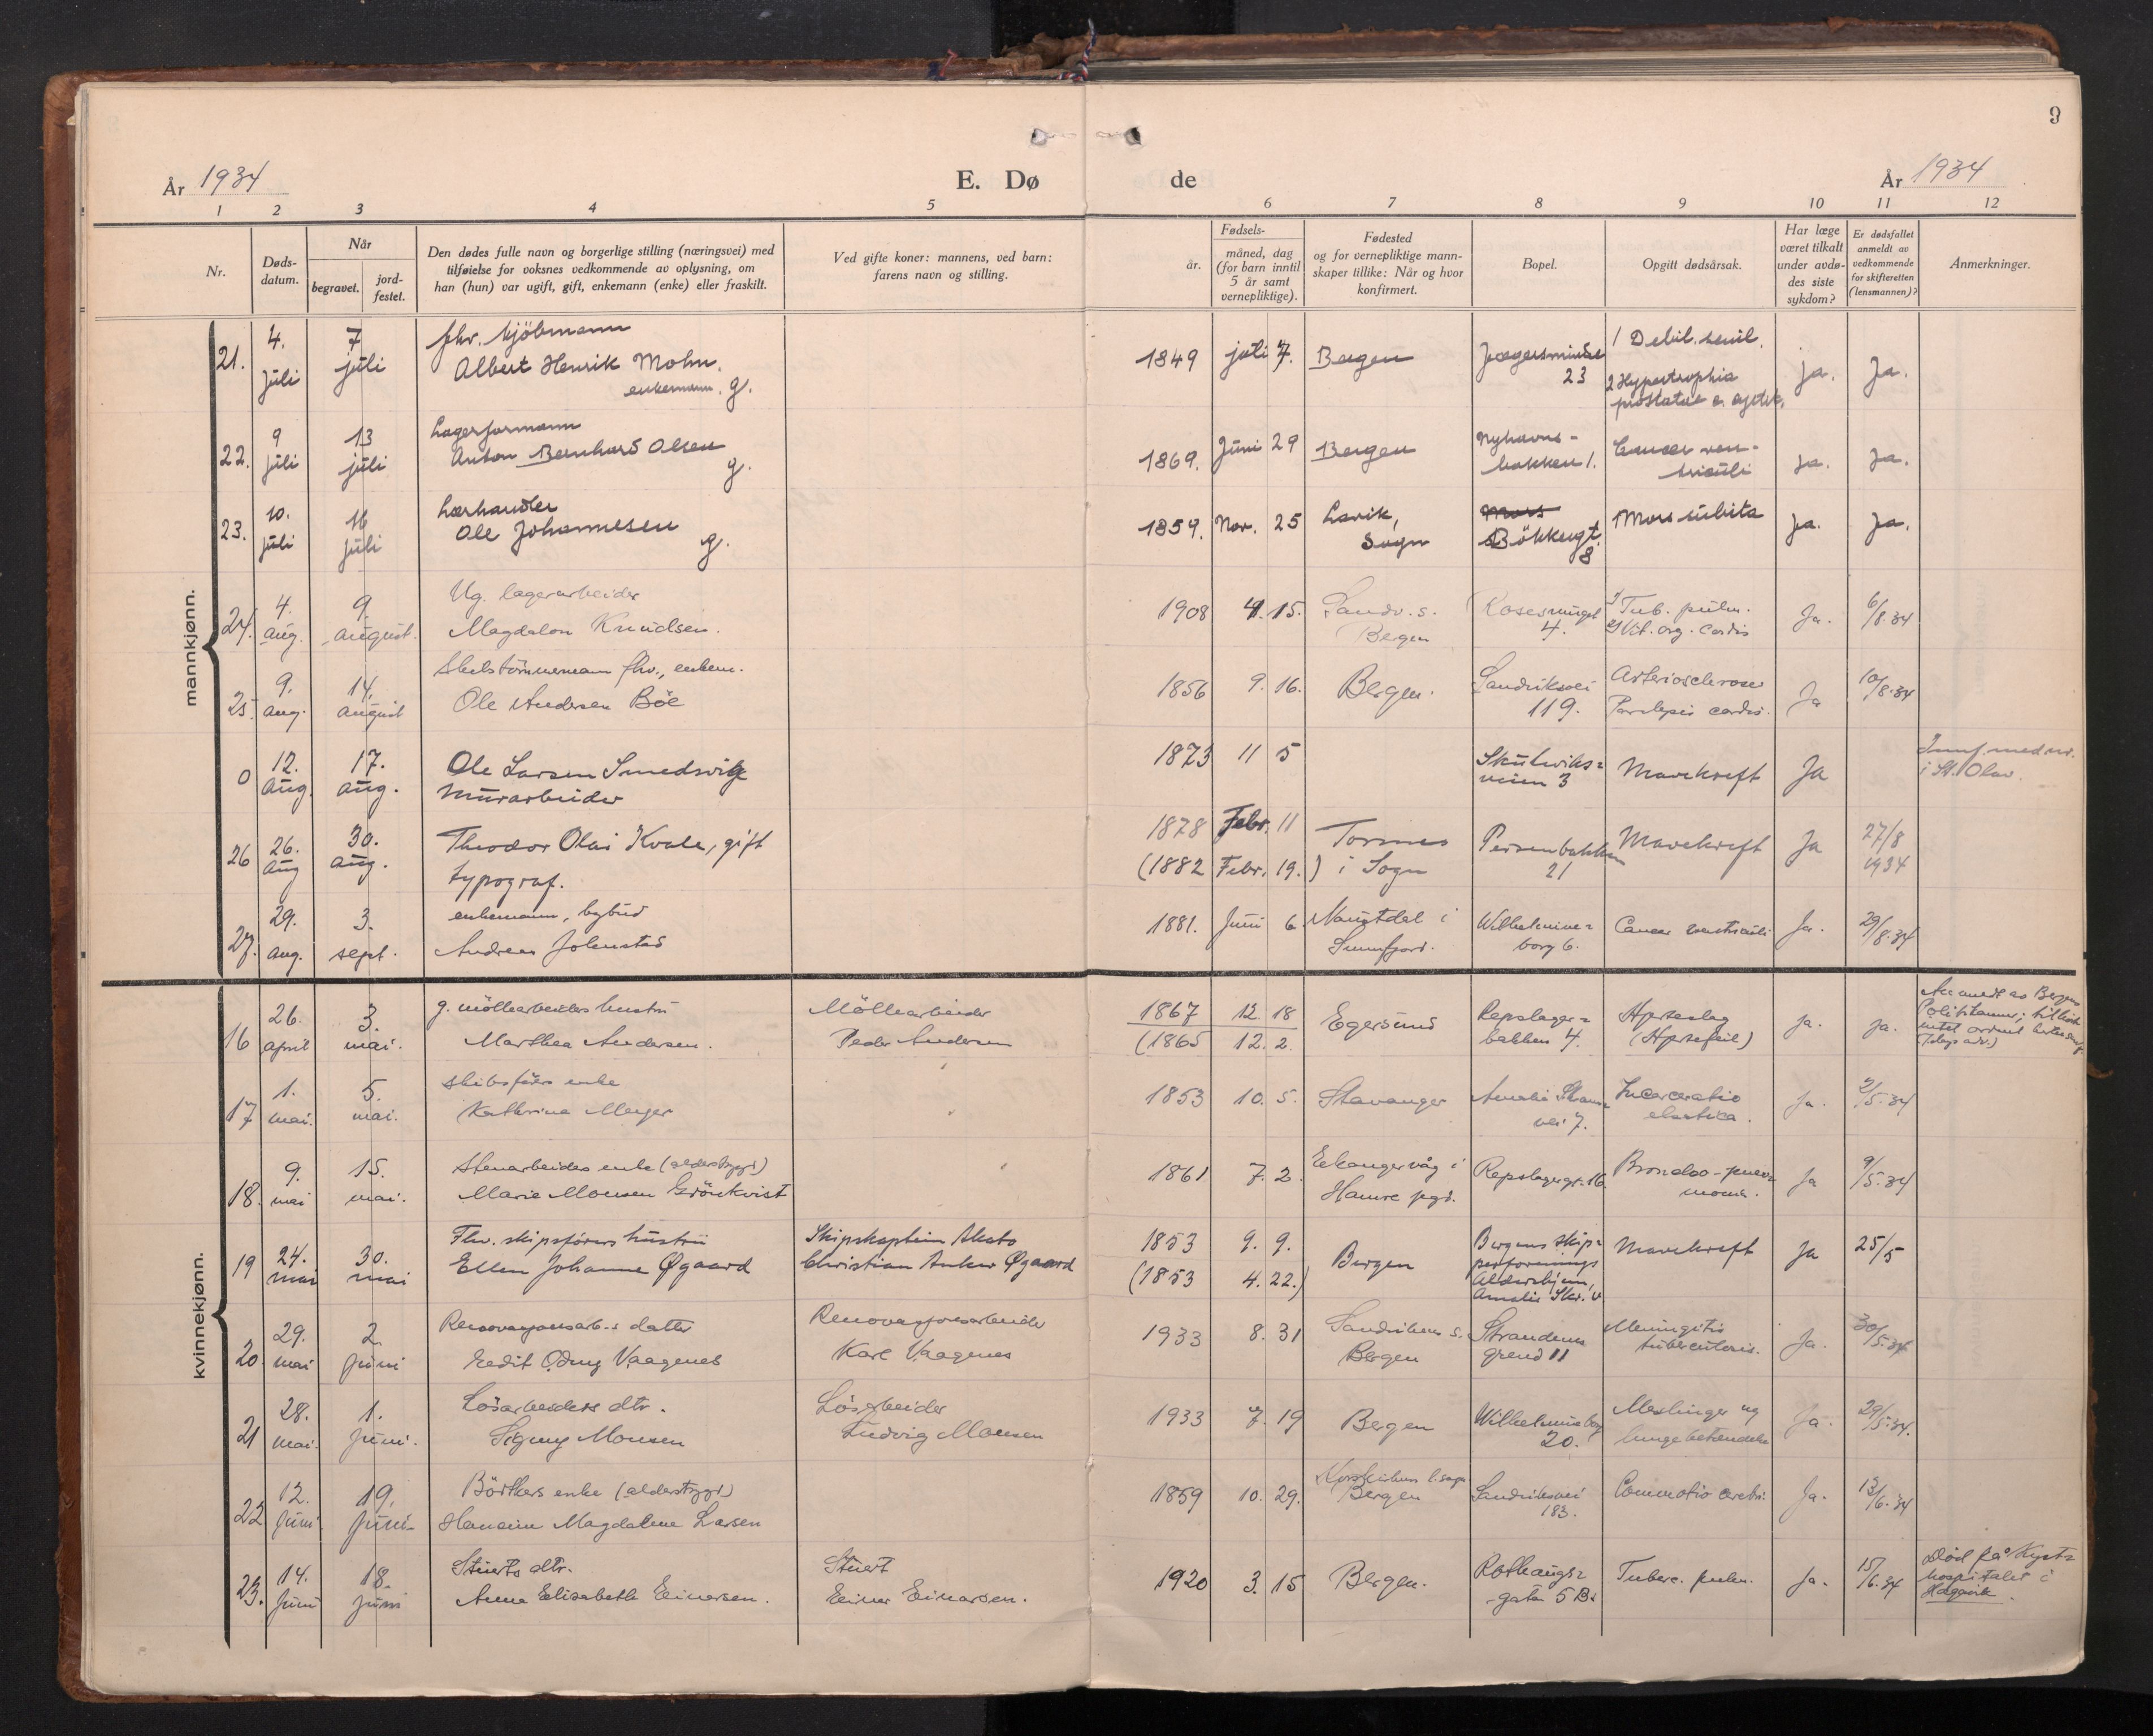 9
År 1934
E. Dø de
År 1934
1 2 3 4 5 6 7 8 9 10 11 12
Nr.
Døds-
datum.
Når
begravet.
jord-
festet.
Den dødes fulle navn og borgerlige stilling (næringsvei) med
tilføielse for voksnes vedkommende av oplysning, om
han (hun) var ugift, gift, enkemann (enke) eller fraskilt.
Ved gifte koner: mannens, ved barn:
farens navn og stilling.
Fødsels-
år.
måned, dag
(for barn inntil
5 år samt
vernepliktige).
Fødested
og for vernepliktige mann-
skaper tillike: Når og hvor
konfirmert.
Bopel.
Opgitt dødsårsak.
Har læge
været tilkalt
under avdø-
des siste
sykdom?
Er dødsfallet
anmeldt av
vedkommende
for skifteretten
(lensmannen)?
Anmerkninger.
mannkjønn.
21. 4. juli 7 juli
fhv. kjöbmann
Albert Henrik Mohn.
enkemann. g.
1849 juli 7. Bergen
Jægersminde
23
1 Debil. senil.
2 Hypertrophia
prostatae
ja. Ja.
22. 9 juli 13 juli
Lagerformann
Anton Bernhard Olsen
g.
1869. Juni 29 Bergen
Nyhavns-
bakken 1.
Cancer ven-
triculi
ja. Ja.
23. 10. juli 16 juli
Lærhandler
Ole Johannesen
g.
1859. Nov. 25
Lavik,
Sogn
Mors
Bökkergt.
8
1 Mors subita
ja. Ja.
24. 4. aug. 9. august.
Ug. lagerarbeider
Magdalon Knudsen.
1908 4. 15.
Sandv. s.
Bergen
Rosesmugt
4.
1) Tub. pulm.
2) Vit. org. cordis
Ja. 6/8.34
25. 9. aug. 14. august
Skibstömmermann fhv., enkem.
Ole Andersen Böe
1856 9. 16. Bergen.
Sandviksvei
119.
Arteriosclerose
Paralysis cordis.
Ja 10/8.34
0 12. Aug. 17. aug.
Ole Larsen Smedsvik
Murarbeider
1873 11 5
Skuteviks=
veien 3
Mavekreft Ja
i St. Olav.
26 26. Aug 30. aug.
Theodor Olai Kvale, gift
typograf.
1878 Febr. 11
(1882 Febr. 19.)
i Sogn
Persenbakken
21
Mavekreft Ja
27/8
1934
27. 29. aug. 3. sept.
enkemann, bybud
Andreas Johnstad
1881. Juni 6.
Naustdal i
Sunnfjord.
Wilhelmine=
borg 6.
Cancer ventriculi Ja. 29/8.34
kvinnekjønn.
16 26. april 3. mai.
g. möllearbeiders hustru
Marthea Andersen.
Möllearbeider
Peder Andersen
1867 12. 18
(1865 12. 2.
Egersund
Repslager=
bakken 4.
Hjerteslag
(Hjertefeil)
ja. ja.
17 1. mai. 5. mai.
Skibsförers enke
Kathrine Meyer
1853 10. 5. Stavanger
Amalie Skrams
vei 7.
Incarceratio
Ja. 2/5.34
18. 9. mai 15. mai.
Stenarbeiders enke (alderstrygd)
Marie Monsen Grönkvist
1861 7. 2.
Eikangervåg i
Hamre pgd.
Repslagergt. 16.
Broncho-pneu=
moni.
Ja 9/5.34
19 24. mai 30. mai
Fhv. skipsförers hustru
Ellen Johanne Øgaard
Skipskaptein
Christian Anker Øgaard
1853 9. 9.
(1853 4. 22.)
Bergen
Bergens skip=
perforenings
Aldershjem,
Amalie Skr. v
Mavekreft Ja 25/5
20 29. mai 2. juni
Renovasjonsarb.s datter
Edit Odny Vaagenes
Renovasjonsarbeider
Karl Vaagenes
1933 8. 31
Sandvikens s.
Bergen
Strandens
grend 11
Meningitis
tuberculosis.
Ja. 30/5.34
21 28. mai. 1. juni.
Lösarbeiders dtr.
Signy Monsen
Lösarbeider
Ludvig Monsen
1933 7. 19 Bergen
Wilhelmineborg
20.
Meslinger og
lungebetendelse
Ja. 29/5.34.
22 12. juni. 19. juni
Bödkers enke (alderstrygd)
Magdalene Larsen
1859 10. 29.
Korskirkens
Bergen
Sandviksvei
183.
Commotio cerebri. Ja. 13/6.34
23. 14. juni 18. juni
Stuerts dtr.
Anna Elisabeth Einarsen.
Stuert
Einar Einarsen.
1920 3. 15 Bergen.
Rothaugs=
gaten 5 B.
Tuberc. pulm. Ja. 15/6.34
Död på Kyst=
hospitalet i
Hagavik.